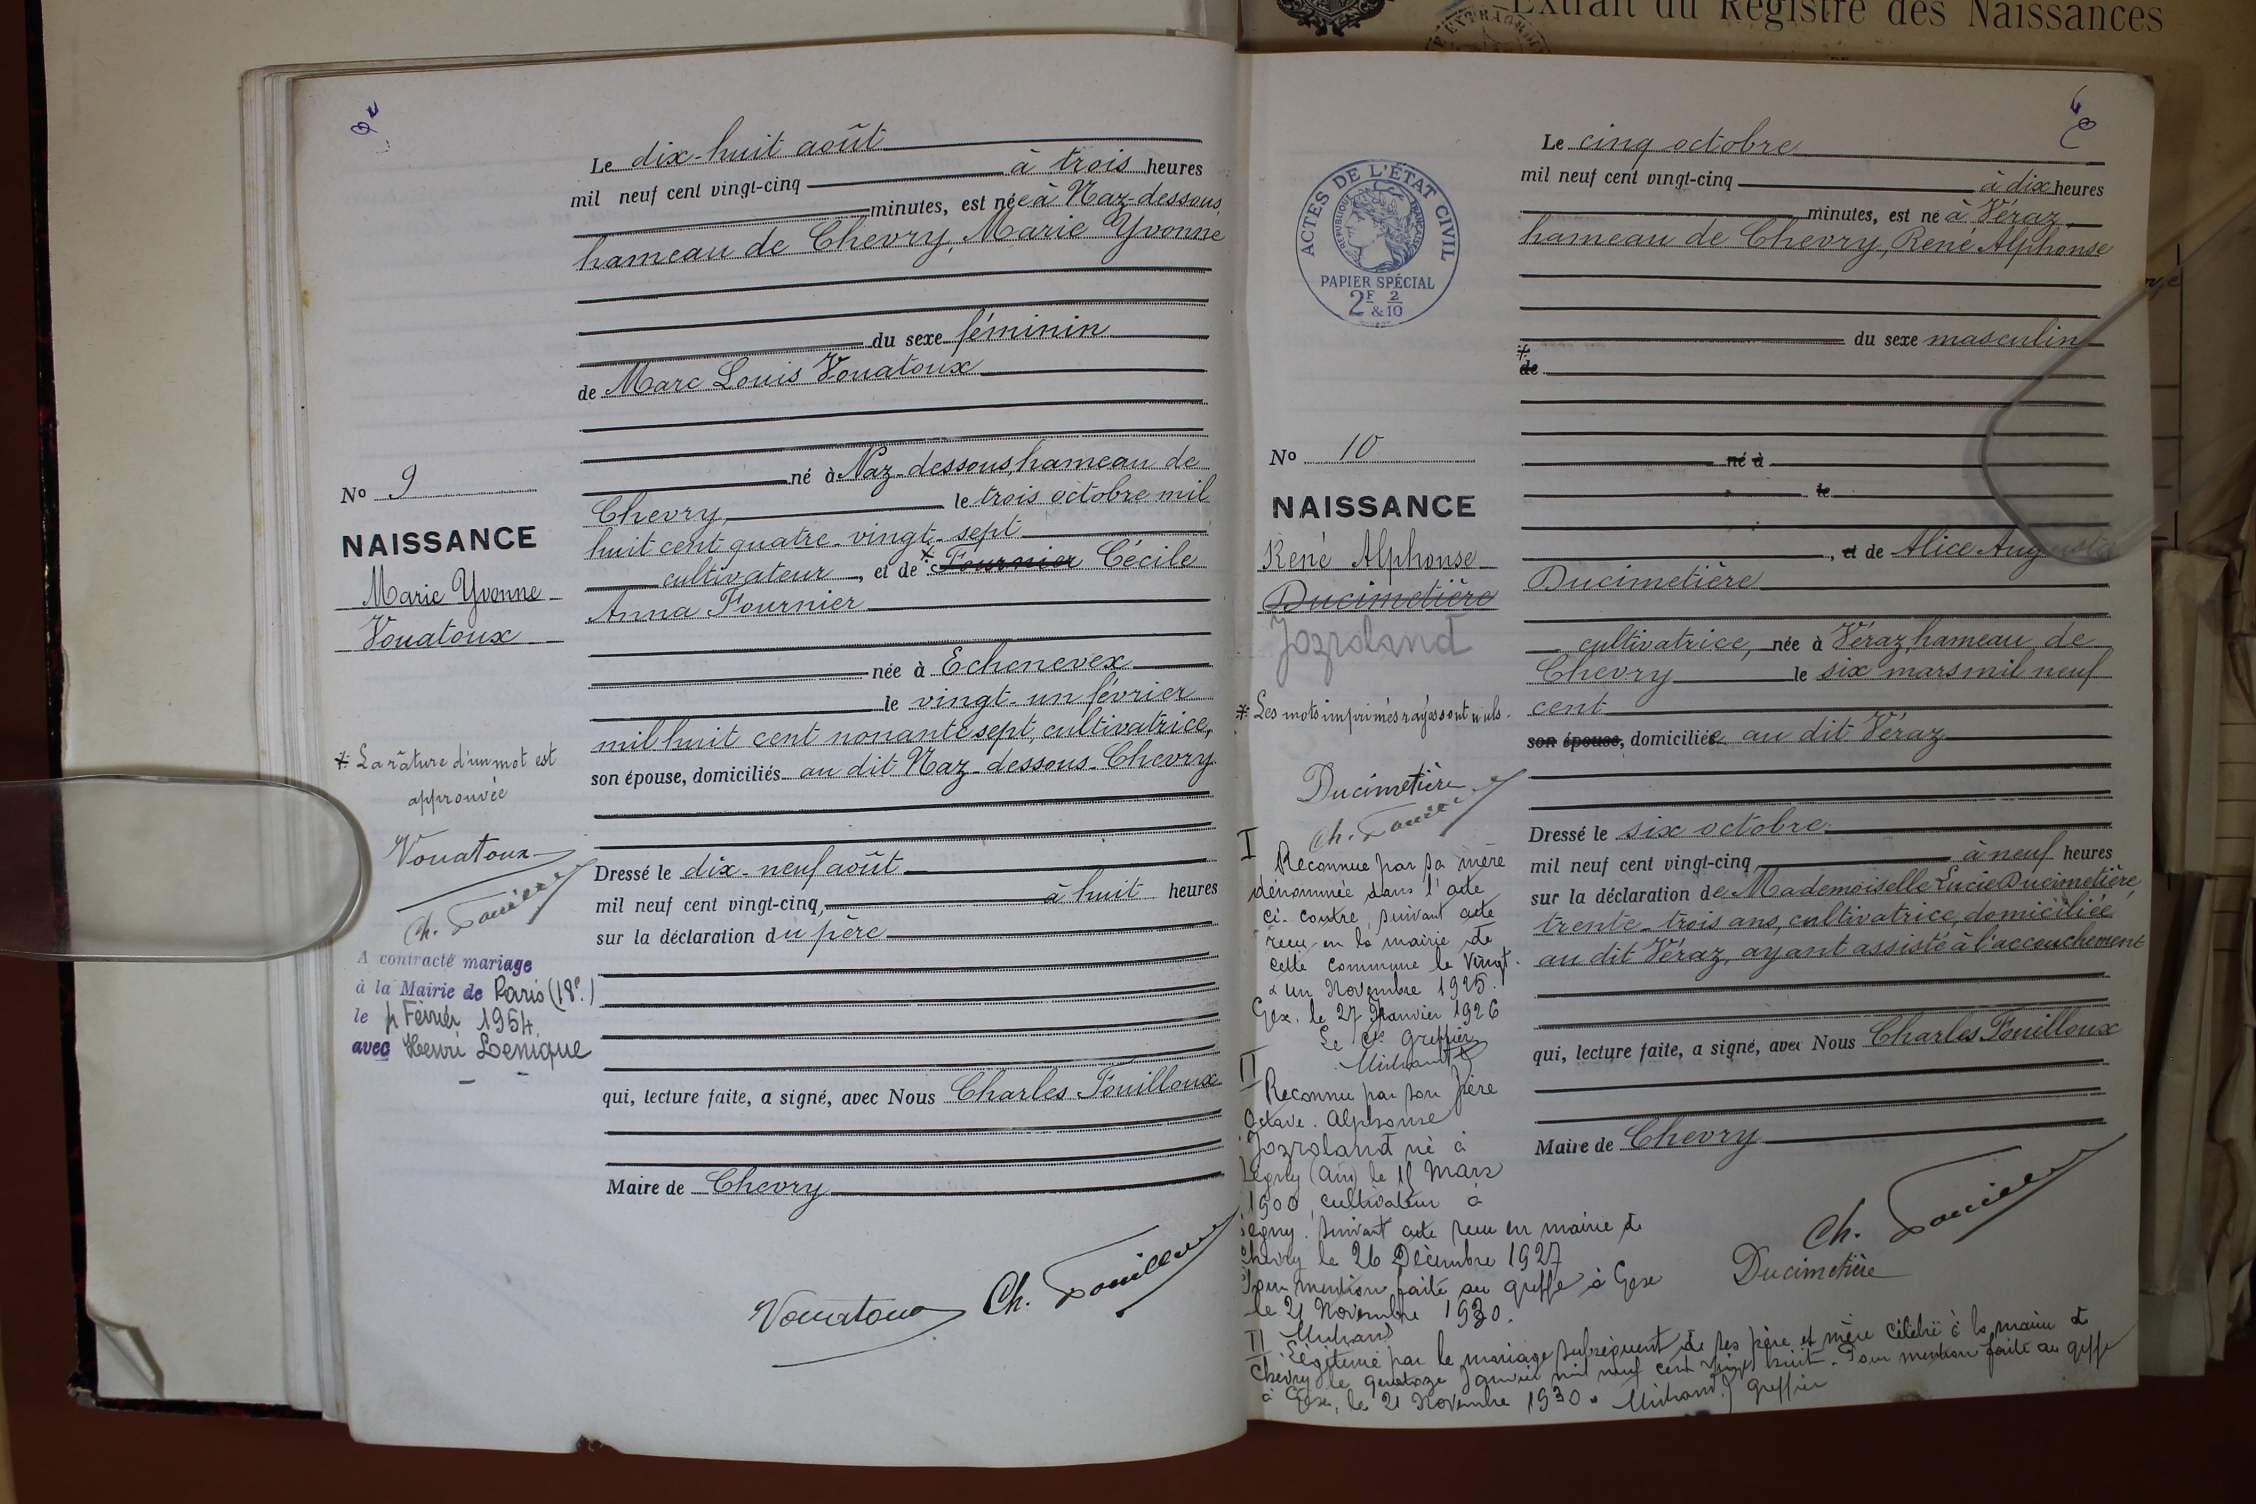 Extrait du Registre des Naissances
Le dix-huit août
mil neuf cent vingt-cinq à trois heures
minutes, est née à Naz-dessous,
hameau de Chevry, Marie Yvonne
du sexe féminin
de Marc Louis Vouatoux
né à Naz-dessous, hameau de
Chevry, le trois octobre mil
huit cent quatre-vingt-sept
cultivateur, et de * Fournier Cécile
Anna Fournier
née à Echenevex
le vingt-un février
mil huit cent nonante sept, cultivatrice,
son épouse, domiciliés au dit Naz-dessous-Chevry.
Dressé le dix-neuf août
mil neuf cent vingt-cinq, à huit heures
sur la déclaration du père
qui, lecture faite, a signé, avec Nous Charles Fouilloux
Maire de Chevry
Vouatoux Ch. Fouilloux
No 9
NAISSANCE
Marie Yvonne
Vouatoux
* La râture d'un mot est
approuvée
Vouatoux
Ch. Fouilloux
A contracté mariage
à la Mairie de Paris (18e.)
le Février 1954.
avec Henri Lenique
Le cinq octobre
mil neuf cent vingt-cinq à dix heures
minutes, est né à Véraz,
hameau de Chevry, René Alphonse
du sexe masculin
*
de
né à
le
, et de Alice
Ducimetière
cultivatrice, née à Véraz, hameau de
Chevry le six mars mil neuf
cent
son épouse, domiciliée au dit Véraz
Dressé le six octobre
mil neuf cent vingt-cinq à neuf heures
sur la déclaration de Mademoiselle Lucie Ducimetière,
trente-trois ans, cultivatrice, domiciliée
au dit Véraz, ayant assisté à l'accouchement
qui, lecture faite, a signé, avec Nous Charles Fouilloux
Maire de Chevry
Ch. Fouilloux
Ducimetière
ACTES DE L'ÉTAT CIVIL
RÉPUBLIQUE FRANÇAISE
PAPIER SPÉCIAL
2F 2
&10
No 10
NAISSANCE
René Alphonse
Ducimetière
Jozroland
* Les mots imprimés rayés sont nuls.
Ducimetière
Ch. Fouilloux
I
Reconnue par sa mère
dénommée dans l'acte
ci-contre, suivant acte
reçu en la mairie de
cette commune le Vingt
& un Novembre 1925.
Gex. le 27 Janvier 1926
Le Greffier
II
Reconnu par son père
Octave. Alphonse
Jozroland né à
Segny (Ain) le Mars
1900, cultivateur à
Segny. suivant acte reçu en mairie de
Chevry le 26 Décembre 1927
Pour mention faite au greffe à Gex
le 21 Novembre 1930.
Légitimé par le mariage subséquent de ses père et mère célébré à la mairie de
Chevry le quatorze Janvier mil neuf cent vingt huit. Pour mention faite au greffe
à Gex, le 21 Novembre 1930. greffier